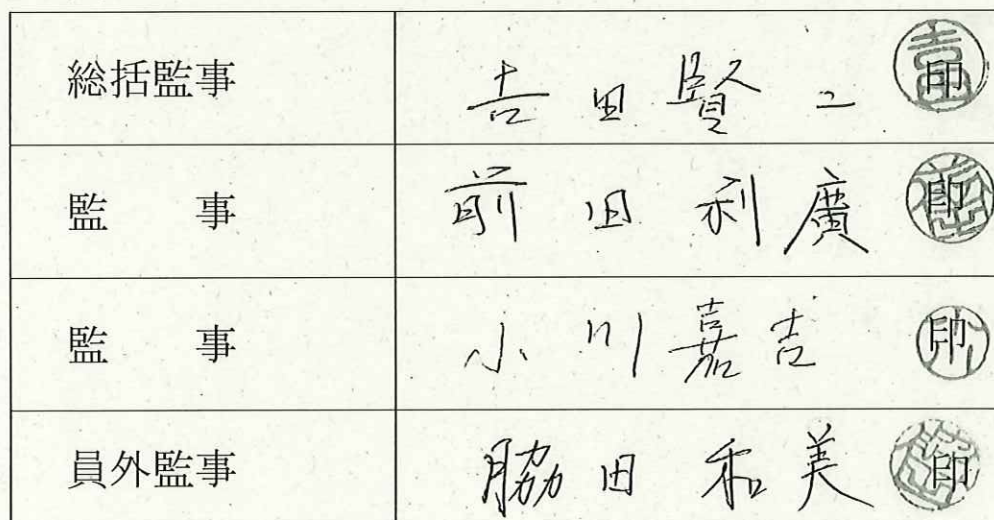 総括監事 吉田賢二 印
監 事 前田利廣 印
監 事 小川嘉吉 印
員外監事 脇田和美 印